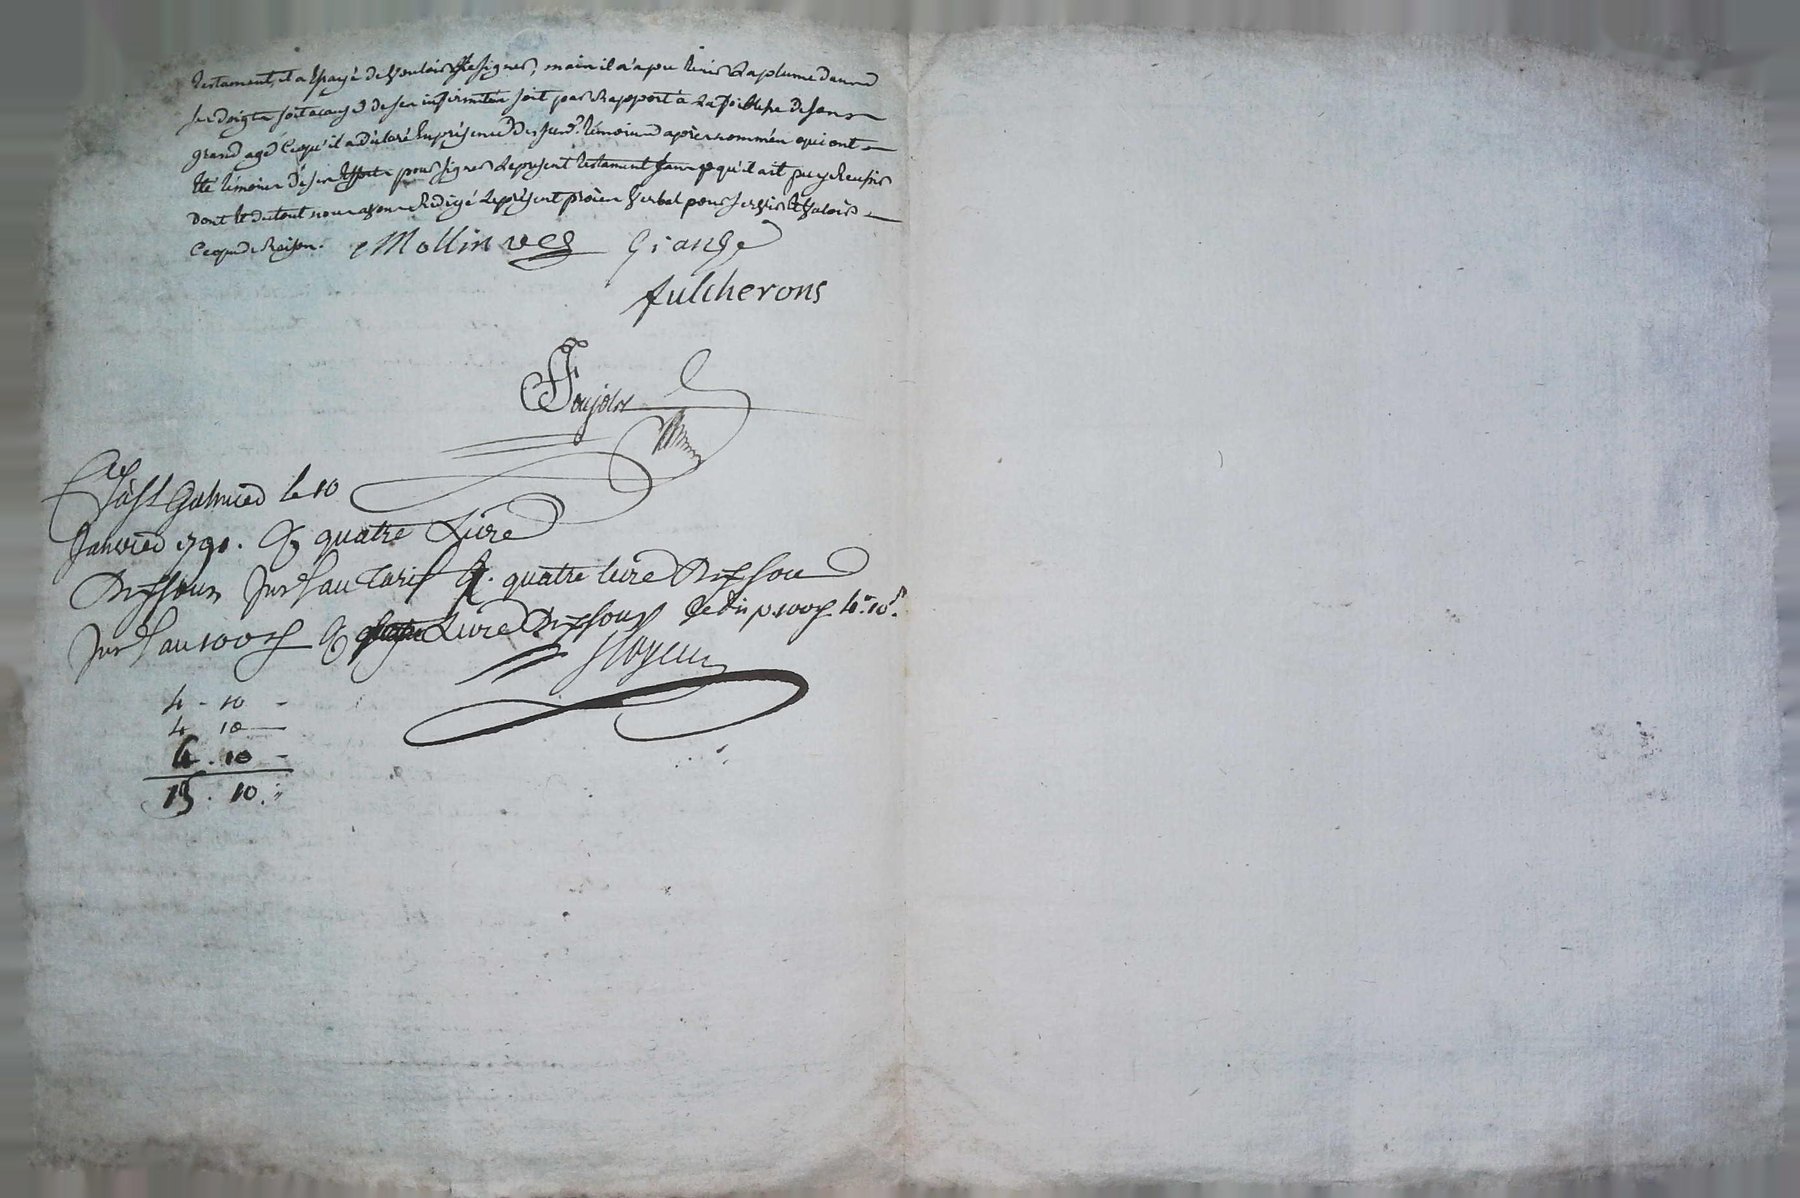 testament, il a Essayé de Vouloir le signer, mais il n'a pu tenir la plume dans
ses doigts soit a cause de ses infirmités soit par Rapport à la foiblesse de son
grand age Ce qu'il a déclaré En présence Des témoins après nommés qui ont
Eté témoins de ses Efforts pour signer le présent testament sans qu'il ait pu y Reussir
Dont Et du tout nous avons Rédigé le présent procès Verbal pour servir Et Valoir
Ce que de Raison. Mollin Grange
fulcherons
Galmier le 10
Janvier 1790. quatre Livre
Dix sous sur au tarif quatre livre Dix sou
sur au 100 Livre Dix sous 4 10
4 - 10 -
4 10 -
4 . 10 -
13 . 10